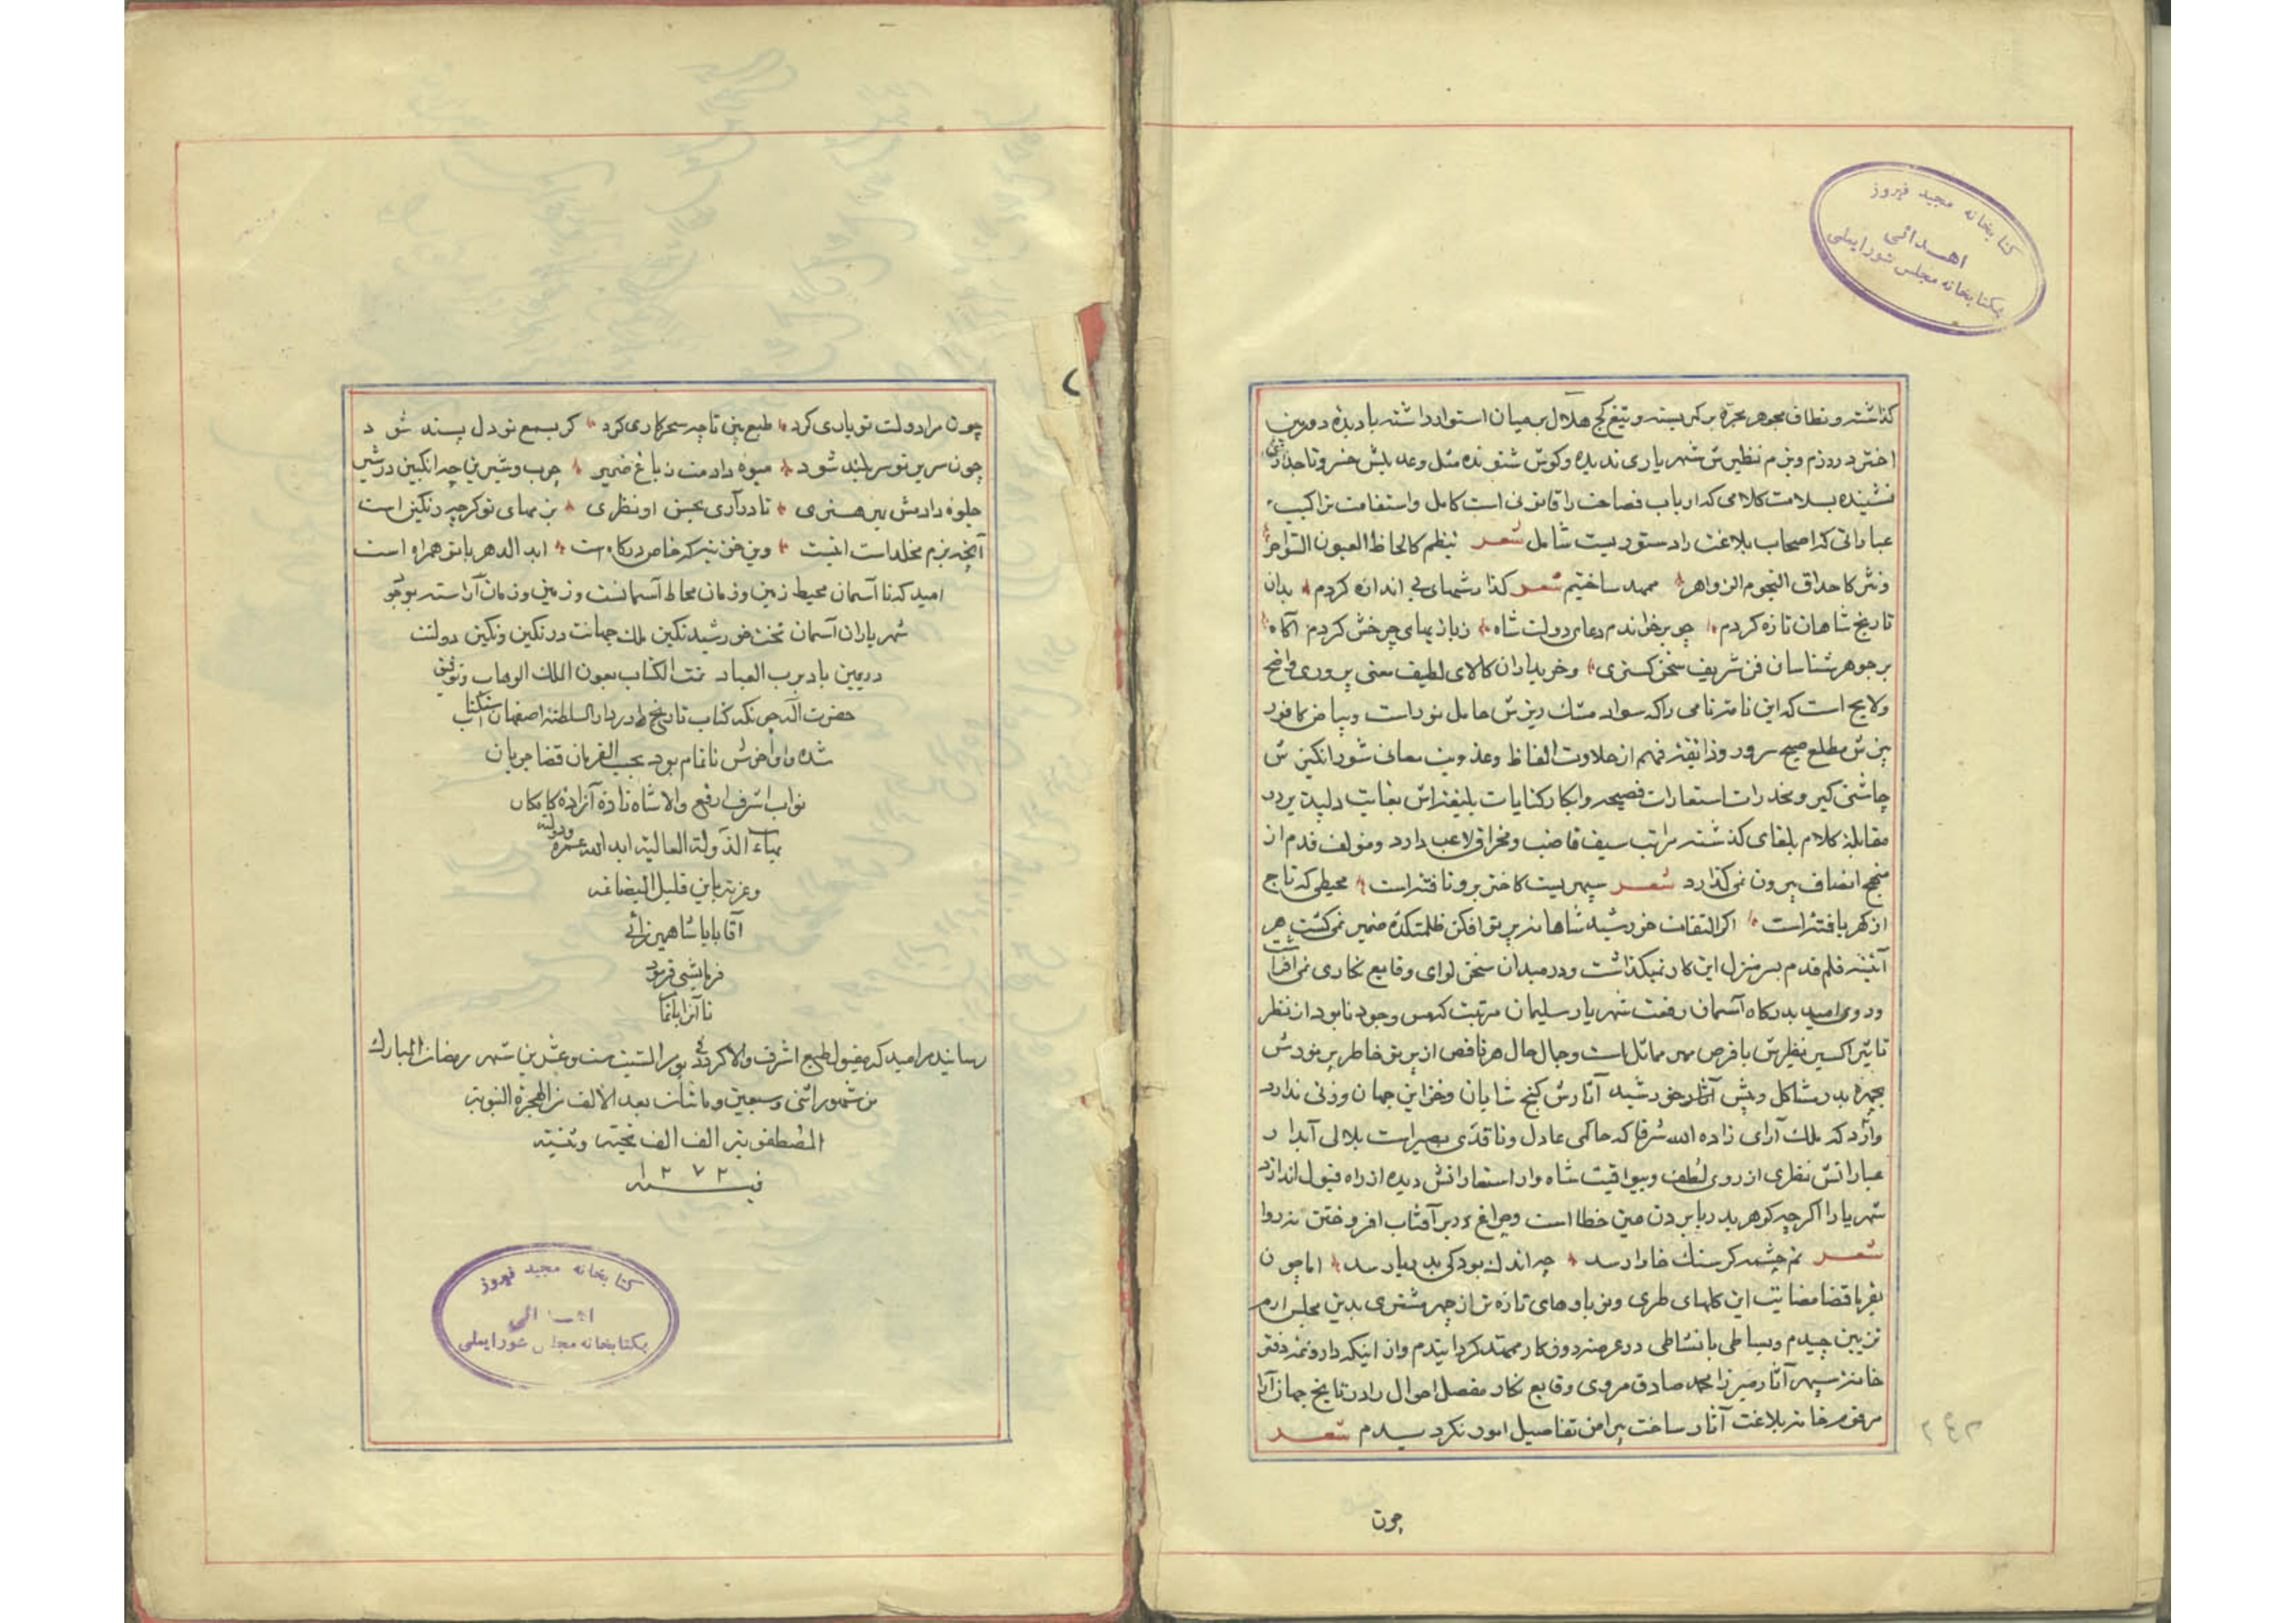 کتابخانه مجید فیروز
اهدائی
بکتابخانه مجلس شورایملی
کذاشته و نطاق مجوهر مجره بر کمر بسته و تیغ کج هلال بر میان استوار داشته با دیده دوربین
اختر در رزم و بزم نظیرش شهریاری ندیده و کوش شنونده مثل و عدیلش خسرو تاجداری
نشنیده بسلامت کلامی که ارباب فصاحت را قانونی است کامل و استقامت تراکیب
عباراتی که اصحاب بلاغت را دستوریست شامل شعر نظم کالحاظ العیون
ونثر کاحداق النجوم الزواهر ممهد ساختیم شعر کذارشهای بی اندازه کردم بدان
تاریخ شاهان تازه کردم چو برخواندم دعای دولت شاه زبانیهای چرخش کردم آکاه
بر جوهر شناسان فن شریف سخن کستری وخریداران کالای لطیف معنی پروری واضح
ولایح است که این نامه نامی را که سواد مشک ریزش حامل نور است وبیاض کافور
بیزش مطلع صبح سرور وذائقه فهم از حلاوت الفاظ وعذوبت معانی شورانکیزش
چاشنی کیر ومخدرات استعارات فصیحه وابکار کنایات بلیغه اش بغایت دلپذیر در
مقابله کلام بلغای کذشته مراتب سیف قاضب ومخراق لاعب دارد ومؤلف قدم از
منهج انصاف بیرون نمی کذارد شعر سپهریست کاختر برو تافته است محیطی که تاج
از کهر بافته است اکر التفات خورشید شاهانه پرتو افکن ظلمتکده ضمیر نمی کشت هر
آئینه قلم قدم بسر منزل این کار نمیکذاشت ودر میدان سخن لوای وقایع نکاری نمی افراشت
وروی امید بدرکاه آسمان رفعت شهریار سلیمان مرتبت که مس وجود نابود از نظر
تاثیر اکسیر نظیرش با قرص مهر مماثل است وجمال حال هر ناقص از پرتو خاطر پر نورش
بچهره بدر مشاکل وپیش آثار خورشید آثارش کنج شایان وخزاین جهان وزنی ندارد
وارد که ملک آرای زاده الله شرفا که حاکمی عادل وناقدی بصیر است بلالی آبدار
عباراتش نظری از روی لطف وبیواقیت شاه وار استعاراتش دیده از راه قبول اندازد
شهریارا اکرچه کوهر بدریا بردن عین خطا است وچراغ در بر آفتاب افروختن نه روا
شعر نم چشمه کر سنک خارا رسد چه اندک بود کی بدریا رسد اما چون
بفر با قضا مضایت این کلهای طری ونوباوهای تازه تر از چهر مشتری بدین مجلس ارم
تزیین چیدم وبساطی با نشاطی در عرصه روزکار ممهد کردانیدم واز اینکه داروغه دفتر
خانه سپهر آثار میرزا محمد صادق مروی وقایع نکار مفصل احوال را در تاریخ جهان آرا
مرقوم خامه بلاغت آثار ساخت پیرامن تفاصیل امور نکردیدم شعر
چون
چون مرا دولت تو یاری کرد طبع بین تا چه سحر کاری کرد کر بسمع تو دلپسند شود
چون سریر تو سر بلند شود میوه دادمت ز باغ ضمیر چرب وشیرین چو انکبین در شیر
جلوه دادمش بین هنری تا درآری بحسن او نظری بزمهای تو کرچه رنکین است
آنچه بزم مخلد است اینست وین خزینه که خاص درکاه است ابد الدهر با تو همراه است
امید که تا آسمان محیط زمین وزمان محاط آسمانست وزمین وزمان آراسته بوجود
شهریاران آسمان تخت خورشید نکین ملک جهانت در نکین ونکین دولت
در یمین باد برب العباد تمت الکتاب بعون الملک الوهاب وتوفیق
حضرت اله چونکه کتاب تاریخ در دار السلطنه اصفهان استکتاب
شده واواخرش ناتمام بود بحسب الفرمان قضا جریان
نواب اشرف ارفع والا شاهزاده آزاده کامکار
بهاء الدولة العالیه ابد الله عمره ودولته
وعزته باین قلیل البضاعه
آقا بابا شاهمیرزائی
فرمایشی فرمود
تا آنرا باتمام
رسانیدم امید که مقبول طبع اشرف والا کردد فی یوم السبت ست وعشرین شهر رمضان المبارک
من شهور اثنی وسبعین ومائتان بعد الالف من الهجرة النبویه
المصطفویه الف الف تحیته وثنیته
فی سنه ۱۲۷۲
کتابخانه مجید فیروز
اهدائی
بکتابخانه مجلس شورایملی